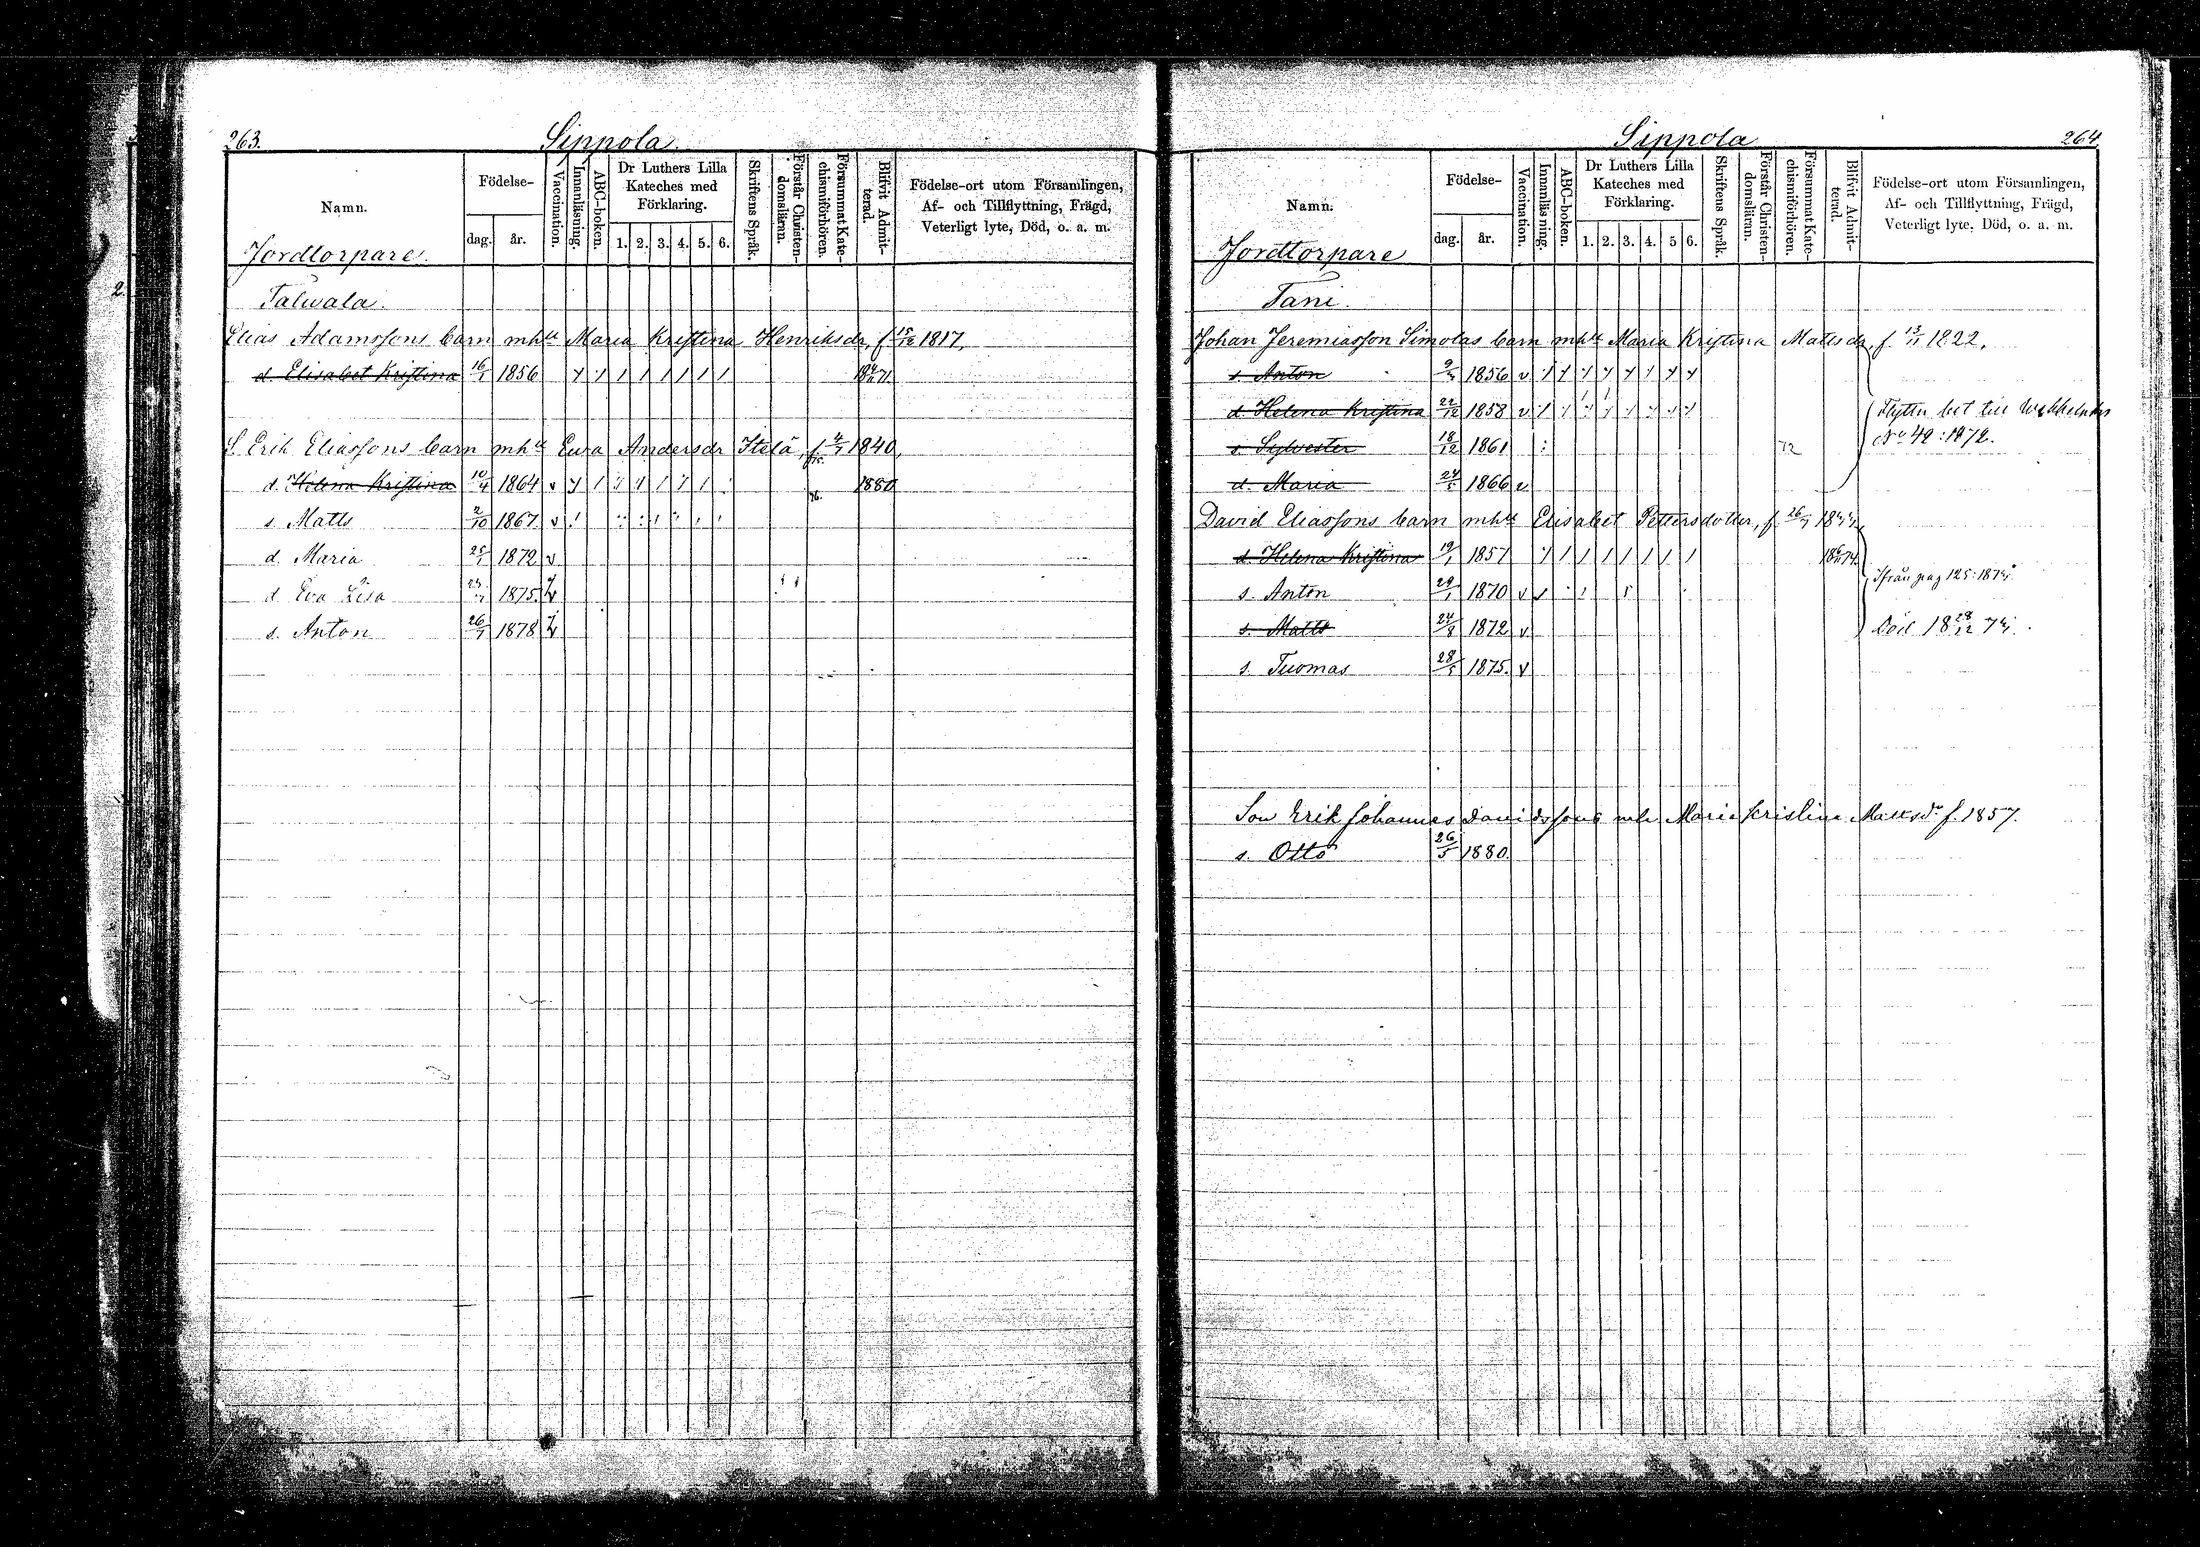 263.
Sippola.
Namn.
Födelse-
dag. år.
Vaccination.
Innanläsning.
ABC-boken.
Dr Luthers Lilla Kateches med Förklaring.
1. 2. 3. 4. 5. 6.
Skriftens Språk.
Förstår Christendomsläran.
Försummat Katechismiförhören.
Blifvit Admitterad.
Födelse-ort utom Församlingen,
Af- och Tillflyttning, Frägd,
Veterligt lyte, Död, o. a. m.
Jordtorpare.
Talwala.
Elias Adamssons barn mhu Maria Kristina Henriksdr, f 15/12 1817,
d. Elisabet Kristina 16/1 1856
S. Erik Eliassons barn mhu Ewa Andersdr Itelä, f. 4/7 1840,
d. Helena Kristina 10/4 1864 v 1880
s. Matts 2/10 1867 v
d. Maria 25/1 1872 v
d Eva Lisa 1875. v
s. Anton 26/7 1878 v
Sippola
264
Namn.
Födelse-
dag. år.
Vaccination.
Innanläsning.
ABC-boken.
Dr Luthers Lilla Kateches med Förklaring.
1. 2. 3. 4. 5 6.
Skriftens Språk.
Förstår Christendomsläran.
Försummat Katechismiförhören.
Blifvit Admitterad.
Födelse-ort utom Församlingen,
Af- och Tillflyttning, Frägd,
Veterligt lyte, Död, o. a. m.
Jordtorpare
Tani.
Johan Jeremiasson Simolas barn mhu Maria Kristina Mattsdr, f. 13/11 1822,
s. Anton 1856 v
d. Helena Kristina 22/12 1858 v
Flyttn bet till
No 42 : 1872.
s. Sylvester 18/12 1861 72
d. Maria 24/5 1866 v
David Eliassons barn mhu Elisabet Pettersdotter, f. 26/7
d. Helena Kristina 19/1 1857
Ifrån pag 125:
s. Anton 29/1 1870 v
s. Matts 24/8 1872 v
Död 18 28/12
s. Tuomas 28/5 1875. v
Son Erik Johannes Davidssons mh Maria Kristina Mattsdr f. 1857.
s. Otto 26/5 1880.